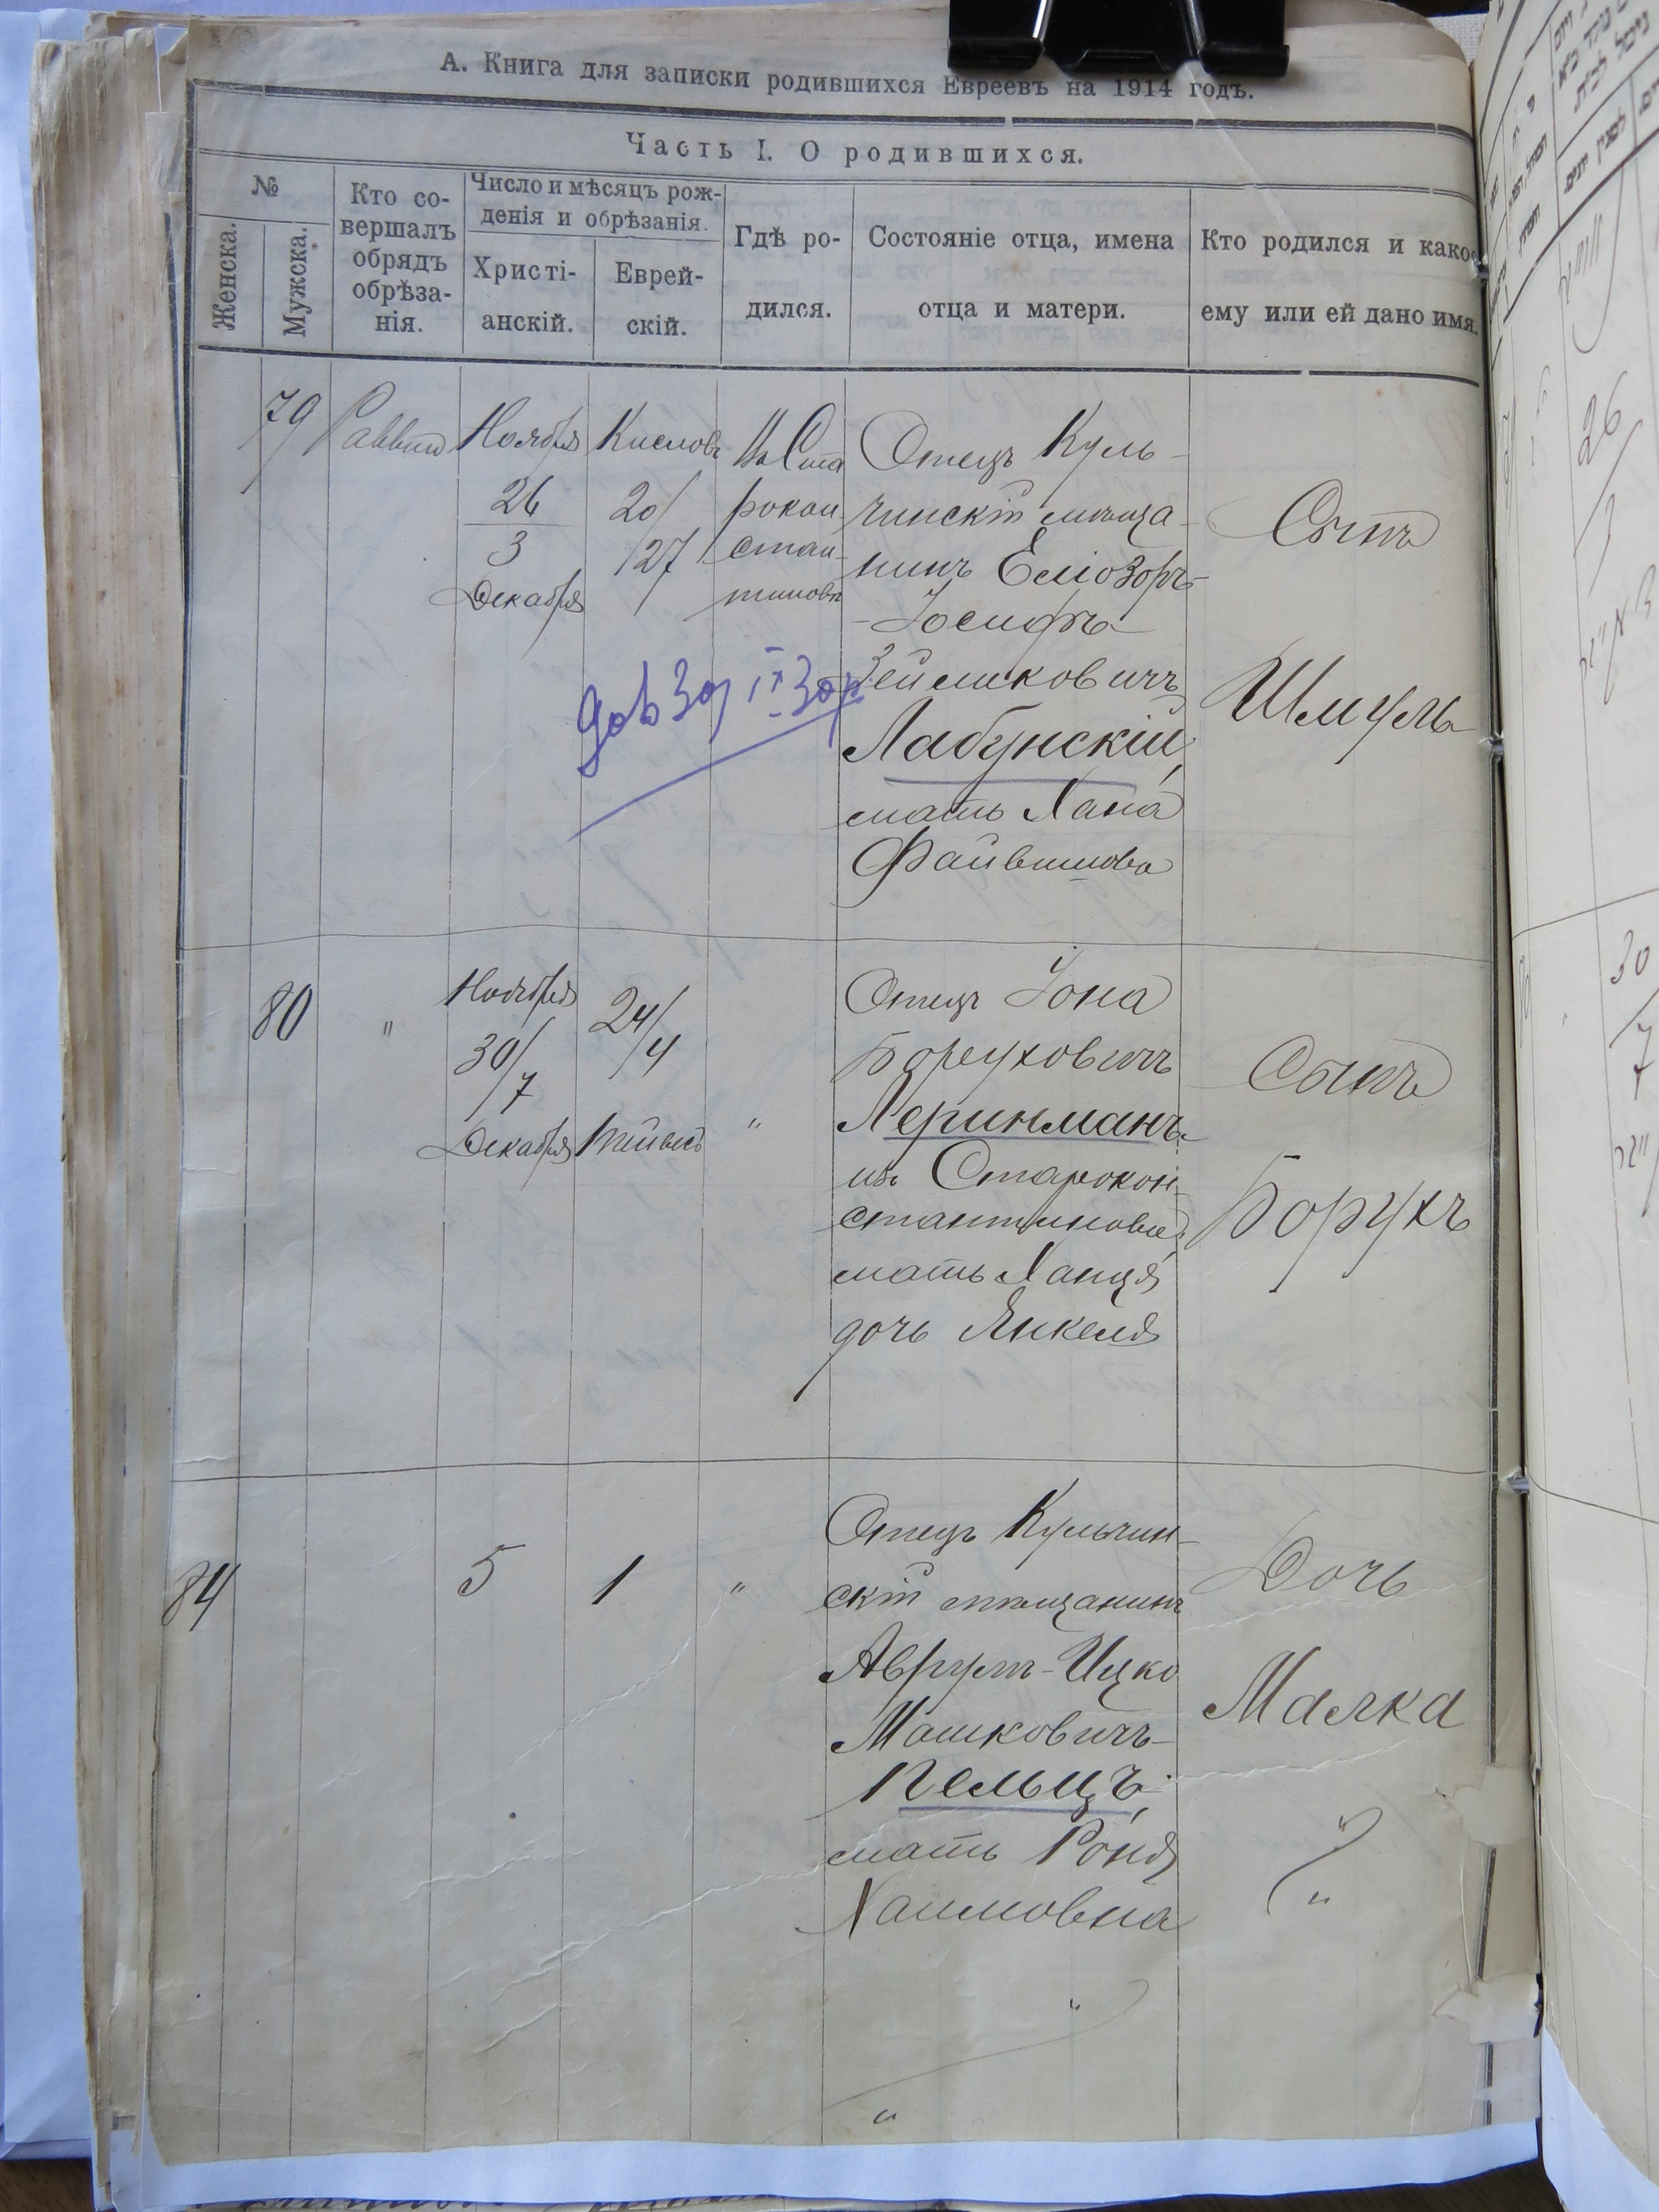 А. Книга для записки родившихся Евреевъ на 1914 годъ.
Часть I. О родившихся.
№
Женска.
Мужска.
Кто со-
вершалъ
обрядъ
обрѣза-
нія.
Число и мѣсяцъ рож-
денія и обрѣзанія.
Христі-
анскій.
Еврей-
скій.
Гдѣ ро-
дился.
Состояніе отца, имена
отца и матери.
Кто родился и какое
ему или ей дано имя.
79
Раввин
Ноября
26
3
Декабря
Кислов
20/
/27
Ста
рокон
стан-
тинов
Отецъ Куль-
чинскій мѣща-
нинъ Еліозоръ-
-Іосифъ
Зейликовичъ
Лабунскій,
мать Хана
Файвишова
Сынъ
Шмуль
80
"
Ноября
30/
/7
Декабря
24/
/4
"
Отецъ Іона
Боруховичъ
Леринманъ
изъ Старокон-
стантинова,
мать Ханця
дочь Янкеля
Сынъ
Борухъ
84
5
1
"
Отецъ Кульчин-
скій мѣщанинъ
Аврумъ-Ицко
Мошковичъ
Пельцъ,
мать Роня
Хаимовна
Дочь
Малка
"
"
"
"
26
/3
30
/7